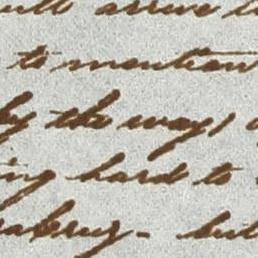 arrive
to mention
by the way,
hard to
but